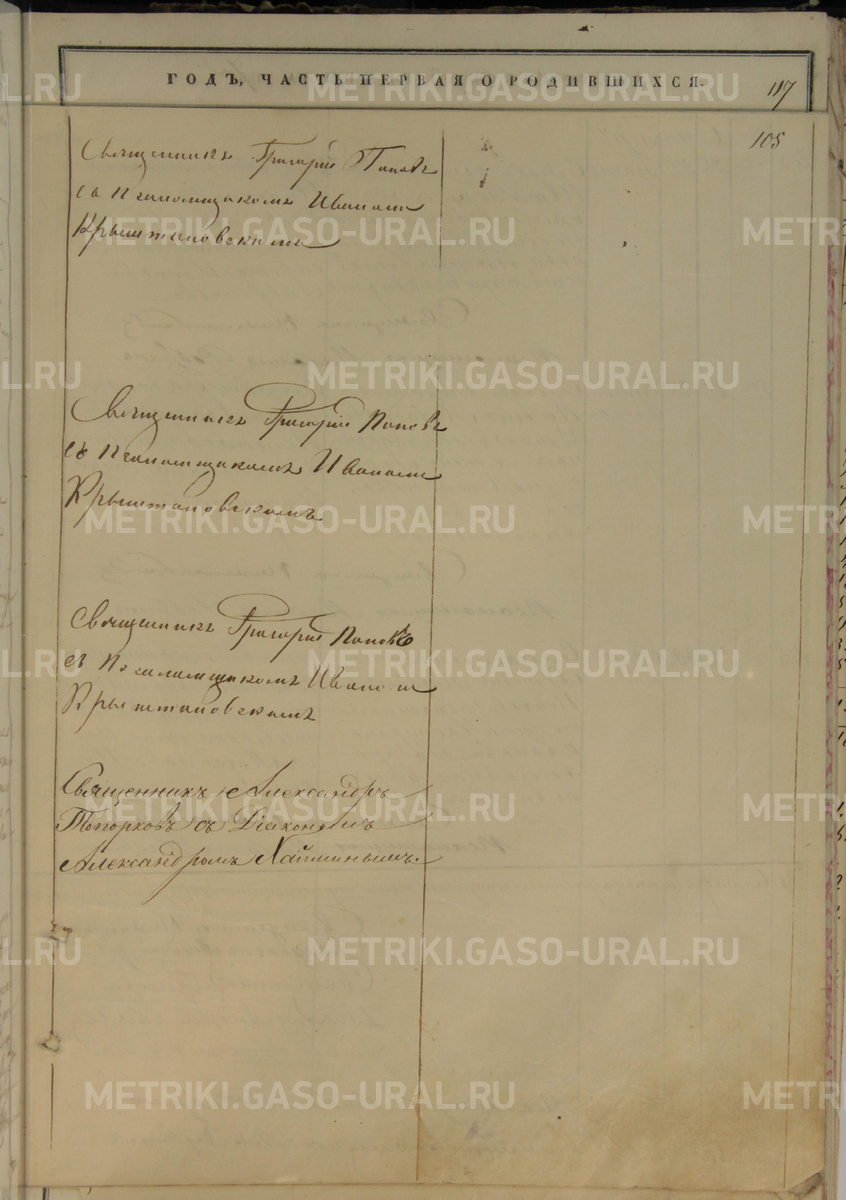 ГОДЪ, ЧАСТЬ ПЕРВАЯ О РОДИВШИХСЯ.
117
105
Священникъ Григорій Поповъ
съ Псаломщикомъ Иваномъ
Крыштановскимъ
Священникъ Григорій Поповъ
съ Псаломщикомъ Иваномъ
Крыштановскимъ
Священникъ Григорій Поповъ
съ Псаломщикомъ Иваномъ
Крыштановскимъ
Священникъ Александръ
Топорковъ съ Діакономъ
Александромъ
METRIKI.GASO-URAL.RU